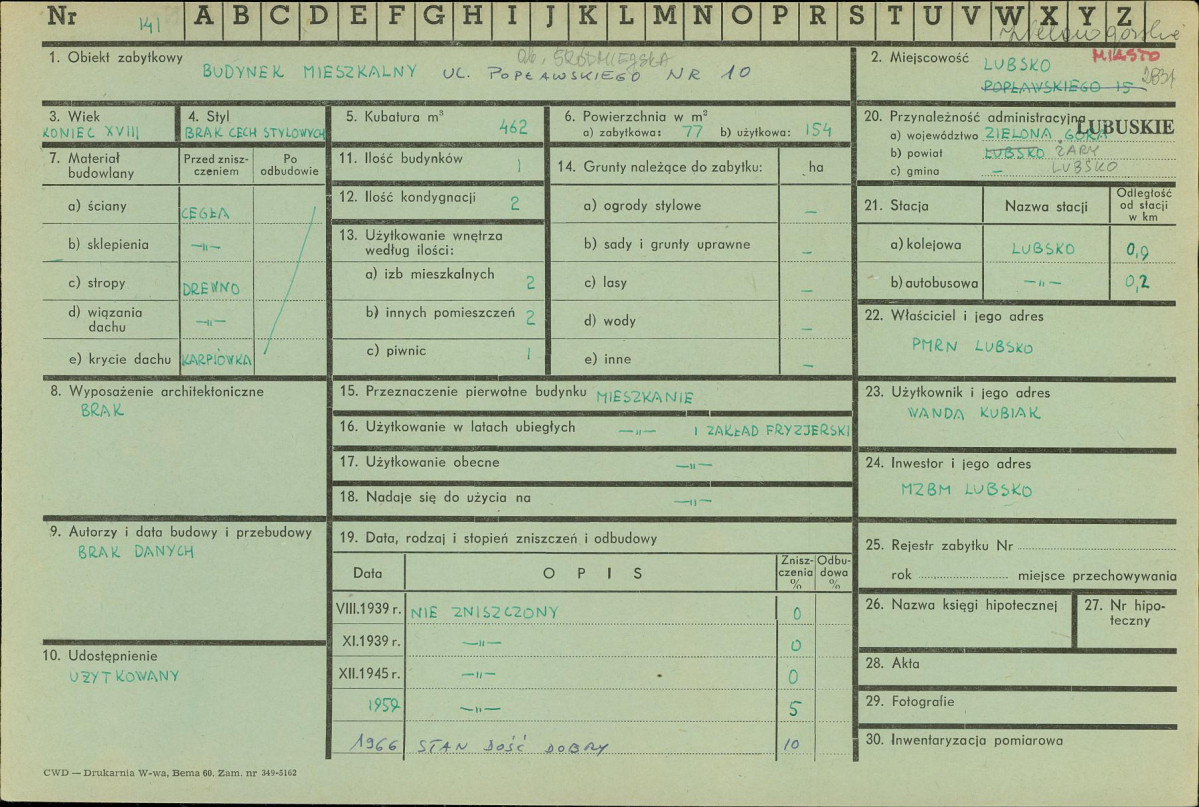 Nr 141 A B C D E F G H I J K L M N O P R S T U V W X Y Z
Zielonogórskie
1. Obiekt zabytkowy
ob. ŚRÓDMIEJSKA
BUDYNEK MIESZKALNY UL. POPŁAWSKIEGO NR 10
2. Miejscowość LUBSKO MIASTO
POPŁAWSKIEGO 15
3. Wiek
KONIEC XVIII
4. Styl
BRAK CECH STYLOWYCH
5. Kubatura m³
462
6. Powierzchnia w m²
a) zabytkowa: 77 b) użytkowa: 154
20. Przynależność administracyjna
LUBUSKIE
a) województwo ZIELONA GÓRA
b) powiat LUBSKO ŻARY
c) gmina — LUBSKO
7. Materiał budowlany
Przed znisz-
czeniem
Po
odbudowie
a) ściany CEGŁA
b) sklepienia —„—
c) stropy DREWNO
d) wiązania
dachu —„—
e) krycie dachu KARPIÓWKA
11. Ilość budynków 1
12. Ilość kondygnacji 2
13. Użytkowanie wnętrza
według ilości:
a) izb mieszkalnych 2
b) innych pomieszczeń 2
c) piwnic 1
14. Grunty należące do zabytku: ha
a) ogrody stylowe —
b) sady i grunty uprawne —
c) lasy —
d) wody —
e) inne —
21. Stacja
Nazwa stacji
Odległość
od stacji
w km
a) kolejowa LUBSKO 0,9
b) autobusowa —„— 0,2
22. Właściciel i jego adres
PMRN LUBSKO
8. Wyposażenie architektoniczne
BRAK
15. Przeznaczenie pierwotne budynku MIESZKANIE
16. Użytkowanie w latach ubiegłych —„— I ZAKŁAD FRYZJERSKI
17. Użytkowanie obecne —„—
18. Nadaje się do użycia na —„—
23. Użytkownik i jego adres
WANDA KUBIAK
24. Inwestor i jego adres
MZBM LUBSKO
9. Autorzy i data budowy i przebudowy
BRAK DANYCH
19. Data, rodzaj i stopień zniszczeń i odbudowy
Data
OPIS
Znisz-
czenia
%
Odbu-
dowa
%
VIII.1939 r. NIE ZNISZCZONY 0
XI.1939 r. —„— 0
XII.1945 r. —„— 0
1959 —„— 5
1966 STAN DOŚĆ DOBRY 10
10. Udostępnienie
UŻYTKOWANY
25. Rejestr zabytku Nr
rok miejsce przechowywania
26. Nazwa księgi hipotecznej
27. Nr hipo-
teczny
28. Akta
29. Fotografie
30. Inwentaryzacja pomiarowa
CWD — Drukarnia W-wa, Bema 60. Zam. nr 349-5162